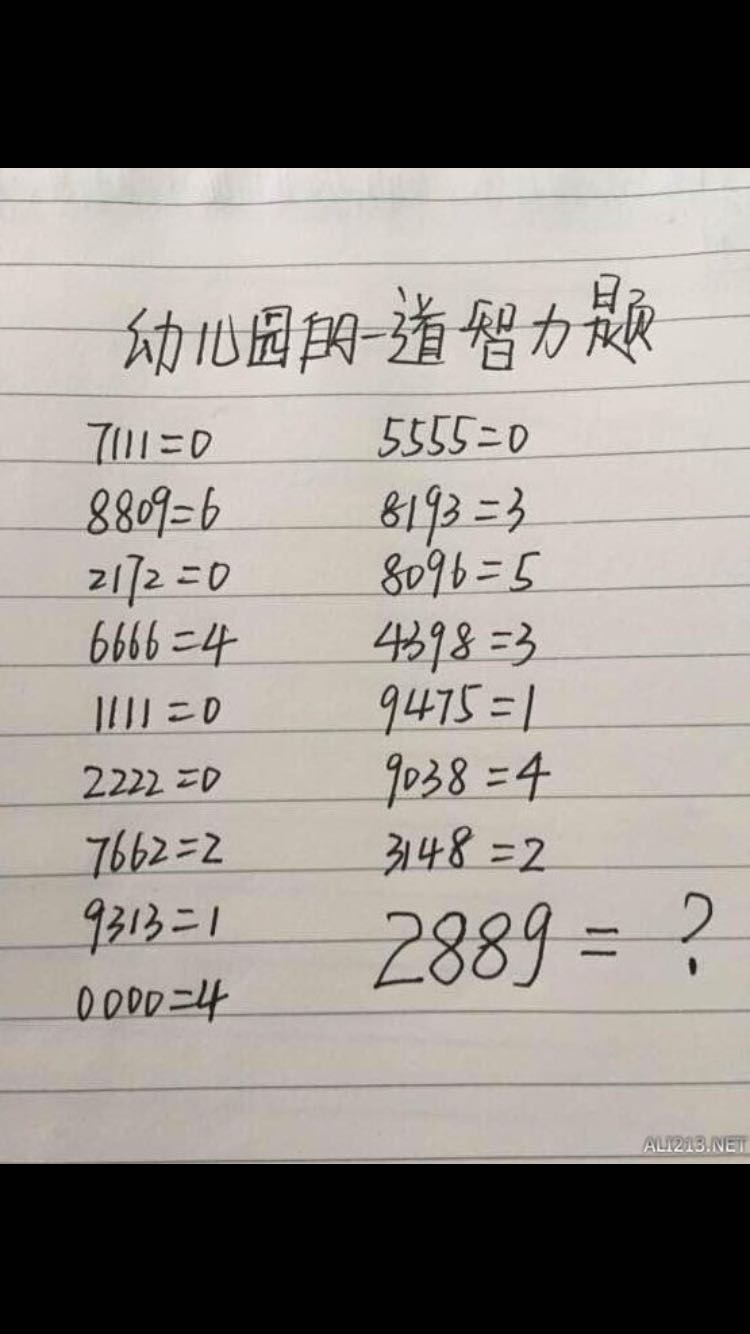 幼儿园的一道智力题
7111=0
8809=6
2172=0
6666=4
1111=0
2222=0
7662=2
9313=1
0000=4
5555=0
8193=3
8096=5
4398=3
9475=1
9038=4
3148=2
2889=?
ALI213.NET